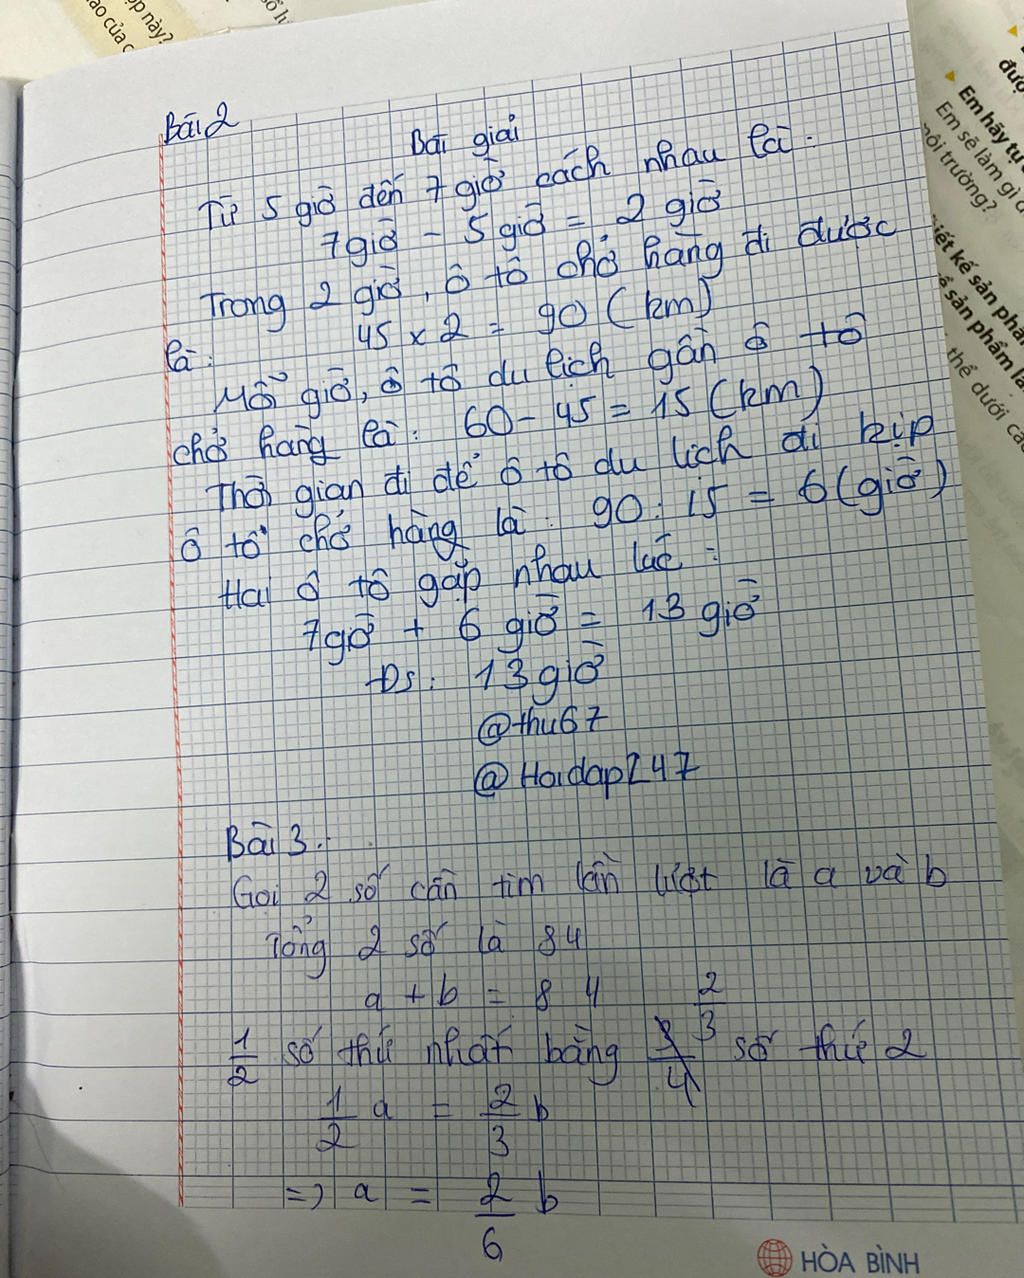 ộp này?
ao của c
số lu
Bài 2
Bài giải
Từ 5 giờ đến 7 giờ cách nhau là:
7giờ - 5 giờ = 2 giờ
Trong 2 giờ, ô tô chở hàng đi được
là:
45 x 2 = 90 (km)
Mỗi giờ, ô tô du lịch gần ô tô
chở hàng là: 60 - 45 = 15 (km)
Thời gian đi để ô tô du lịch đi kịp
ô tô chở hàng là: 90 : 15 = 6 (giờ)
Hai ô tô gặp nhau lúc:
7giờ + 6 giờ = 13 giờ
Đs: 13 giờ
@thu67
@Hoidap247
Bài 3.
Gọi 2 số cần tìm lần lượt là a và b
Tổng 2 số là 84
a + b = 84
1/2 số thứ nhất bằng 2/3 số thứ 2
1/2 a = 2/3 b
=> a = 2/6 b
HÒA BÌNH
đượ
Em hãy tự
Em sẽ làm gì
môi trường?
iết kế sản phẩ
sản phẩm là
thể dưới cá